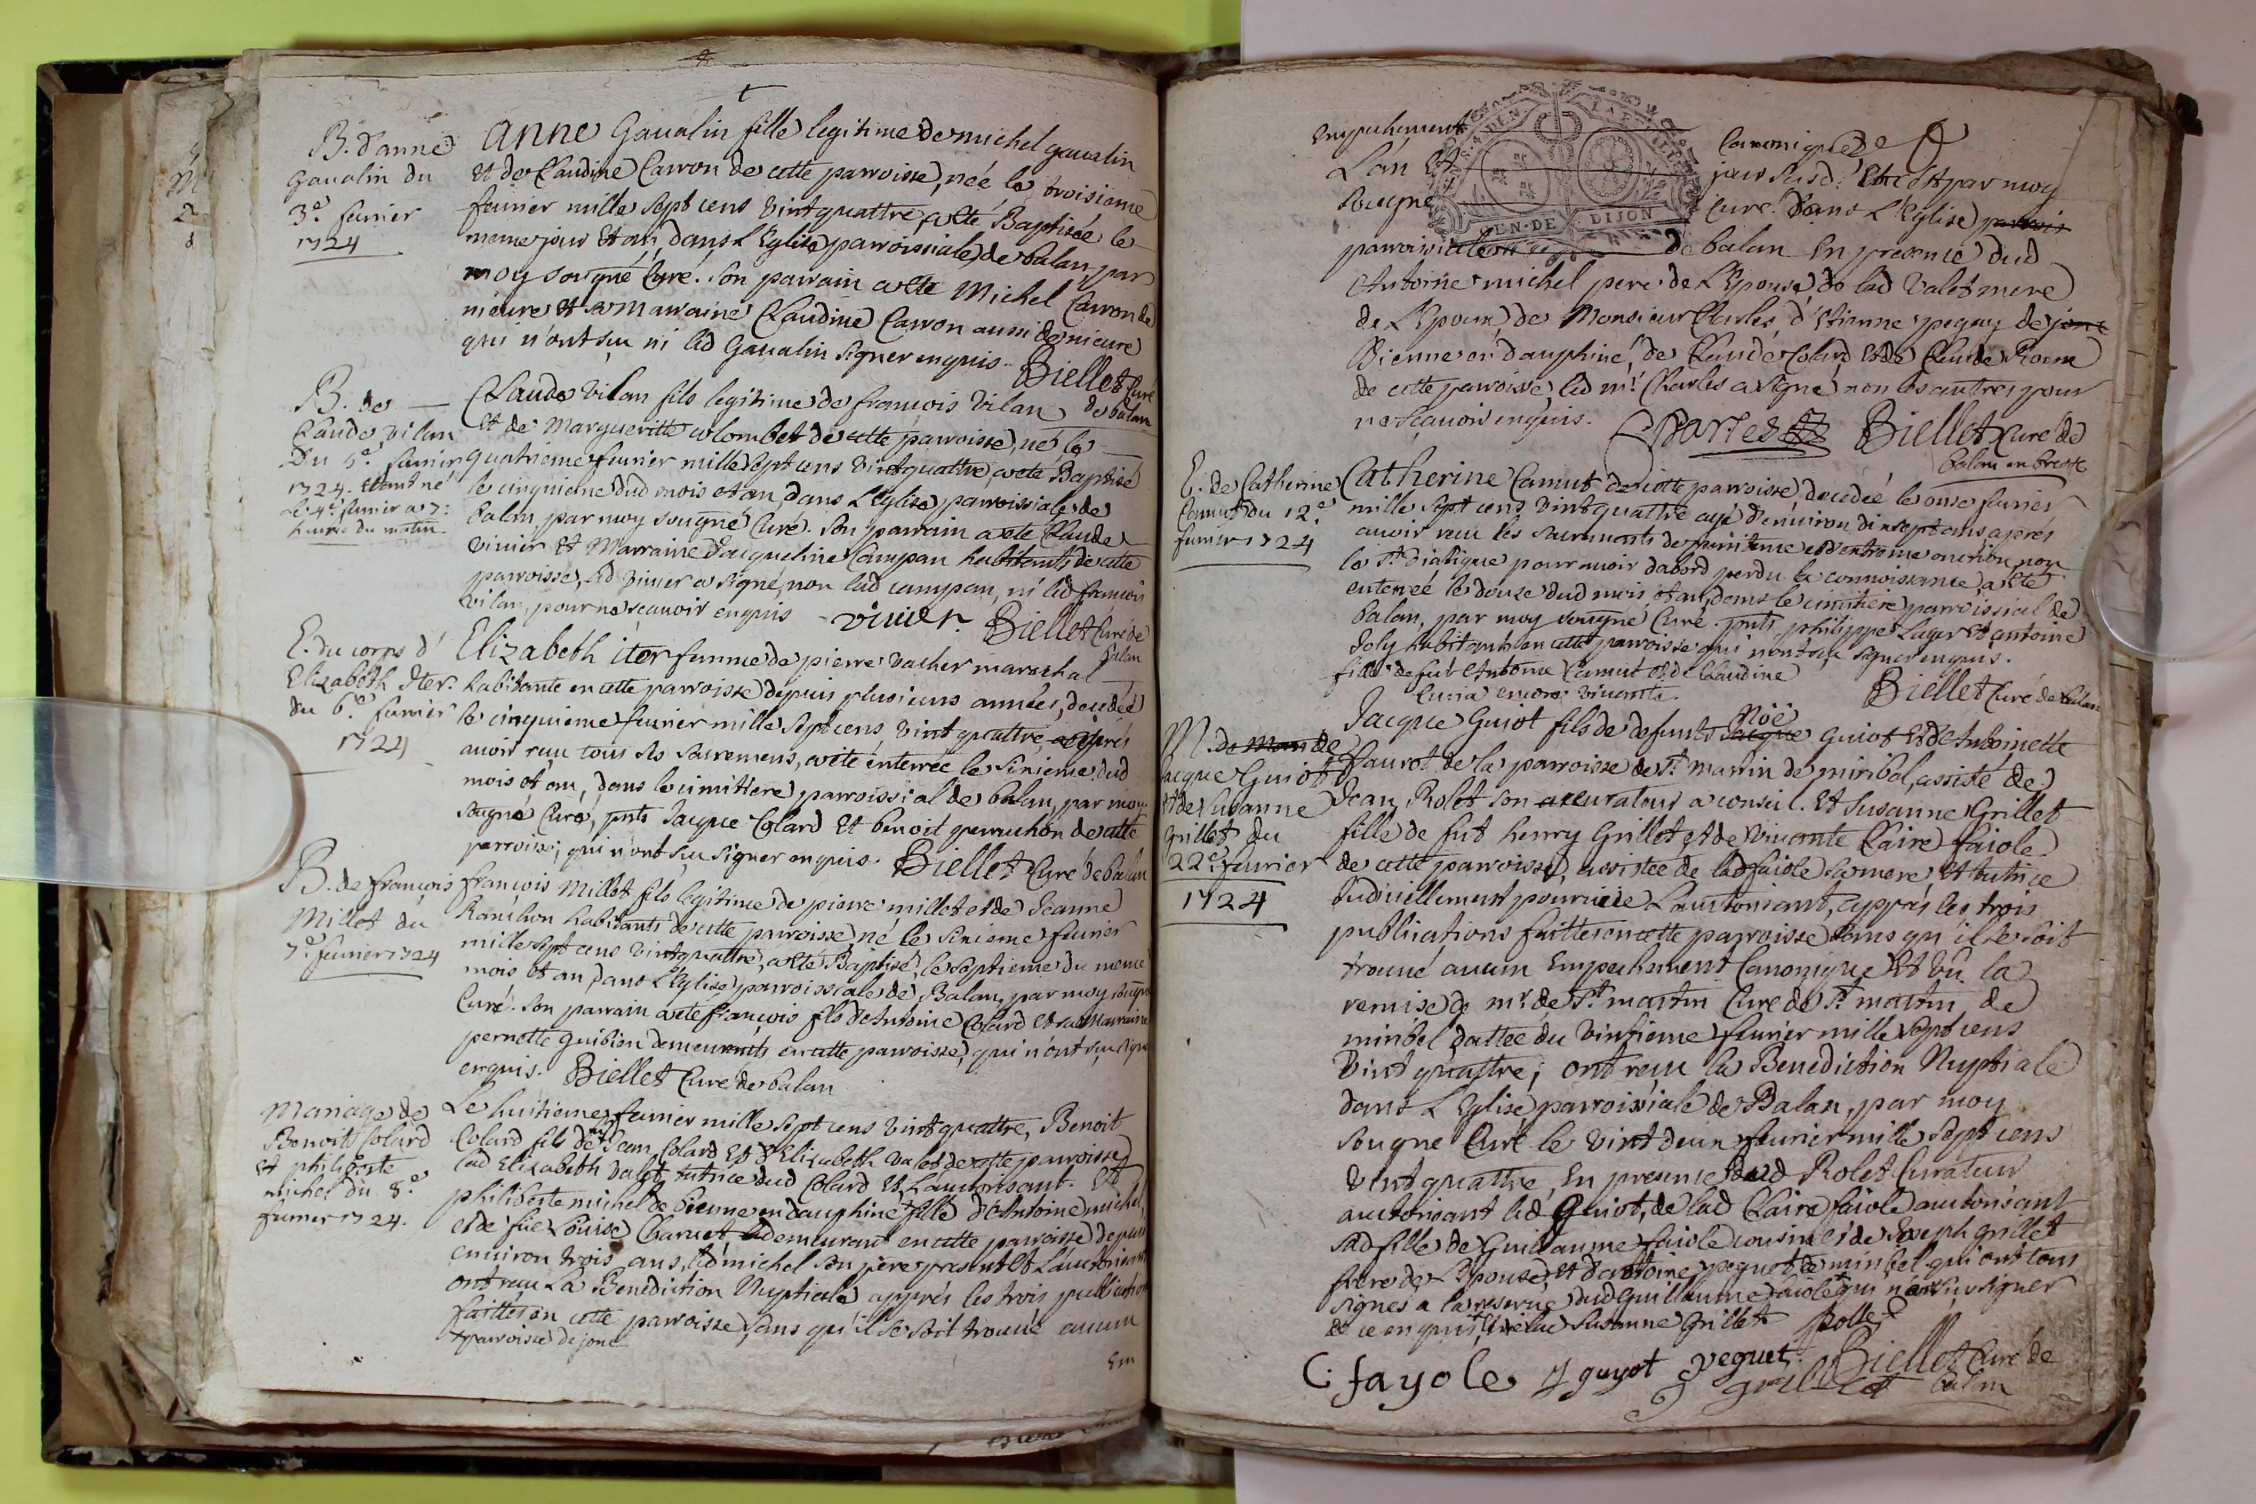 B. d'anne
Gaualin du
3.e feurier
1724
Anne Gaualin fille legitime de michel gaualin
et de Claudine Carron de cette parroisse, née le troisieme
feurier mille sept cens vint quattre, a eté Baptisée le
meme jour et an, dans L'Eglise parroissiale de balan par
moy sougné Curé. Son parrain a eté Michel Carron de
nieure et sa Marraine Claudine Carron aussi de nieure
qui n'ont sçu ni led Gaualin signer enquis. Biellet Curé
de balan
B. de
Claude vilan
Du 5.e feurier
1724. etant né
le 4.e feurier a 7.
heures du matin.
Claude vilan fils legitime de francois vilan
et de Margueritte colombet de cette parroisse, né le
quatrieme feurier mille sept cens vint quattre, a eté Baptisé
le cinquieme dud mois et an dans L'Eglise parroissiale de
balan par moy sougné Curé. Son parrain a eté Claude
vinier et Marraine Jacqueline Campan habitants de cette
parroisse, led vinier a signé, non lad campan, ni led francois
vilan, pour ne scauoir enquis vinier. Biellet Curé de
balan
E. du corps d'
Elizabeth Iter.
du 6.e feurier
1724
Elizabeth iter femme de pierre vacher marechal
habitante en cette parroisse depuis plusieurs années, decedée
le cinquieme feurier mille sept cens vint quattre, apprés
auoir reçu tous ses sacremens, a eté enterrée le sixieme dud
mois et an, dans le cimitiere parroissial de balan, par moy
sougné Curé, pnts Jacque Colard et benoit perruchon de cette
parroisse, qui n'ont sçu signer enquis. Biellet Curé de balan
B. de françois
Millet du
7.e feurier 1724
françois Millet fils legitime de pierre millet et de Jeanne
habitants de cette parroisse, né le sixieme feurier
mille sept cens vint quattre, a eté Baptisé le septieme du meme
mois et an dans L'Eglise parroissiale de Balan, par moy sougné
Curé. Son parrain a eté françois fils d'Antoine Colard et sa Marraine
pernette guibien demeurants en cette parroisse, qui n'ont sçu signer
enquis. Biellet Curé de balan
Mariage de
Benoit Colard
et philiberte
michel du 8.e
feurier 1724.
Le huitieme feurier mille sept cens vint quattre, Benoit
Colard fils de feu Jean Colard et d'Elizabeth valet de cette parroisse
lad Elizabeth valet tutrice dud Colard et L'autorisant. Et
philiberte michel de vienne en dauphiné fille d'Antoine michel,
et de füe Louise Charuet, demeurant en cette parroisse depuis
enuiron trois ans, led michel son pere present et L'autorisant
ont reçu La Benediction Nuptiale apprés les trois publications
faittes en cette parroisse, sans qu'il se soit trouué aucun
parroisse de jone
Em
empechement canonique
L'an et jour susd. par moy
sougné Curé. Dans L'Eglise
parroissiale de balan En presence dud
Antoine michel pere de L'Epouse, de lad valet mere
de L'Epoux, de Monsieur Charles, d'Etienne peguy de
vienne en dauphiné, de Claude Colard et de Claude
de cette parroisse, led mr Charles a signé, non les autres pour
ne sçauoir enquis.
Charles Biellet Curé de
balan en bresse
E. de Catherine
Camut du 12.e
feurier 1724
Catherine Camut de cette parroisse, decedée le onze feurier
mille sept cens vint quattre agée d'enuiron dixsept ans, aprés
auoir reçu les sacrements de penitence et d'extreme onction, non
le st. viatique pour auoir dabord perdu la connoissance, a eté
enterrée le douze dud mois et an, dans le cimitiere parroissial de
balan, par moy sougné Curé. pnts philippe Luger et antoine
Joly habitants en cette parroisse qui n'ont sçu signer enquis.
fille de fut Antoine Camut et de Claudine
Curia encore viuante. Biellet Curé de balan
M. de
Jacque Guiot
et de Susanne
Grillet du
22.e feurier
1724
Jacque Guiot fils de defunts Noé guiot et d'Antoinette
Laurot de la parroisse de St. martin de miribel, assisté de
Jean Rolet son curateur a conseil. Et Susanne Grillet
fille de fut henry Grillet et de viuante Claire faiole
de cette parroisse, assistée de lad faiole sa mere, et tutrice
Judiciellement pourueüe L'autorisant, apprés les trois
publications faittes en cette parroisse sans qu'il se soit
trouué aucun Empechement Canonique, Et vü la
remise de mr. de St. martin Curé de St. martin de
miribel dattée du vintieme feurier mille sept cens
vint quattre, ont reçu la Benediction Nuptiale
dans L'Eglise parroissiale de Balan, par moy
sougné Curé le vint deux feurier mille sept cens
vint quattre, En presence dud Rolet Curateur
autorisant led Guiot, de lad Claire faiole autorisant
sad fille, de Guillaume faiole cousin, de Joseph grillet
frere de L'Epouse, et d'antoine peguet de miribel qui ont tous
signés a la reserue dud Guillaume faiole qui n'a sçu signer
de ce enquis, et lad Susanne Grillet Rollet
C. fayole J guyot peguet. Biellet Curé de
grillet balan